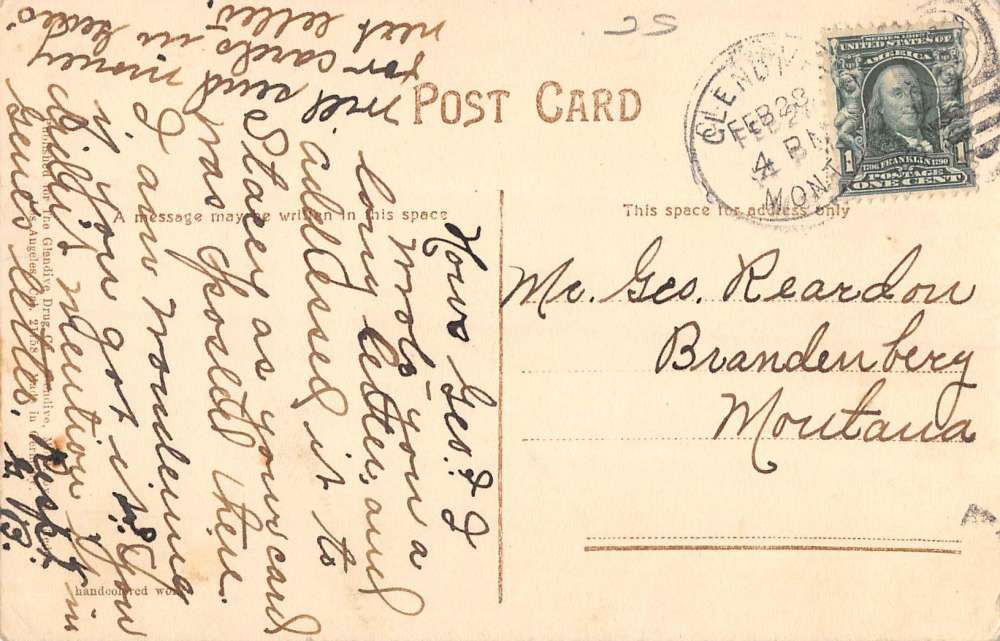 25
POST CARD
GLENDIVE
FEB 28
4 PM
MONT
SERIES 1902
UNITED STATES OF AMERICA
1706 FRANKLIN 1790
POSTAGE
1 ONE CENT 1
A message may be written in this space
This space for address only
Mr. Geo. Reardon
Brandenberg
Montana
Hows Geo.? I
wrote you a
long letter, and
addressed it to
Stacey as your card
was posted there.
I am wondering
if you got it. If you
did, mention in
Genos letter.
Respt
G. B.
will send money
for cards in
next letter.
Published for the Glendive Drug Co., Glendive,
Los Angeles, Made in Germany
handcolored work